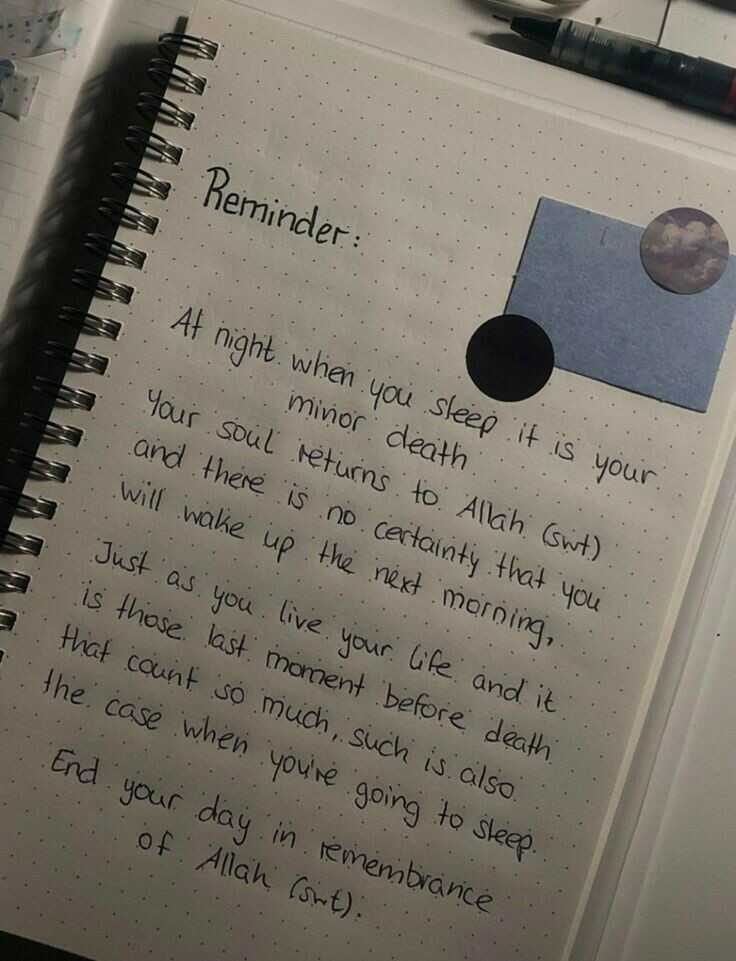 Reminder:
At night when you sleep it is your
minor death
Your soul returns to Allah (swt)
and there is no certainty that you
will wake up the next morning,
Just as you live your life and it
is those last moment before death
that count so much, such is also
the case when you're going to sleep.
End your day in remembrance
of Allah (swt).